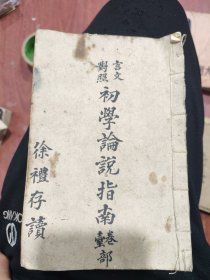 言文
對照
初學論說指南
卷
壹
部
徐禮存讀